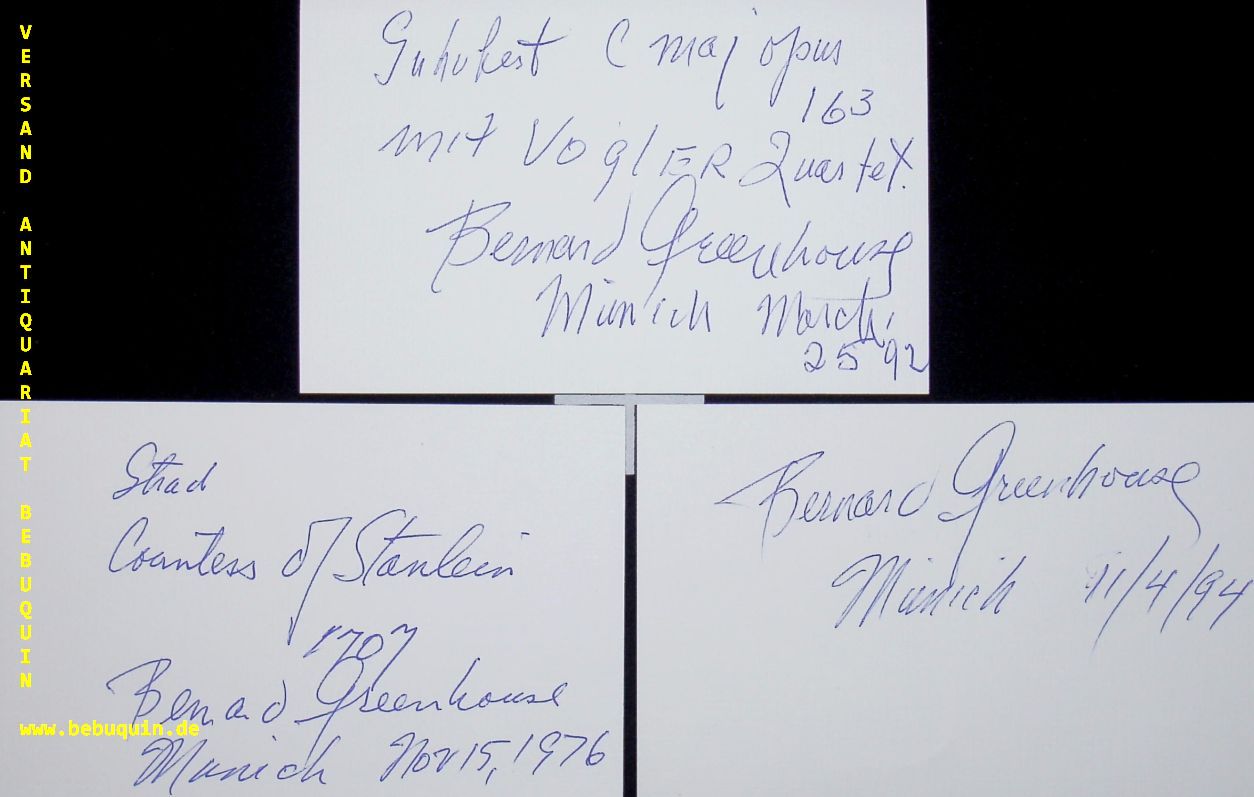 VERSAND ANTIQUARIAT BEBUQUIN
www.bebuquin.de
C maj opus
163
mit VoglER Quartet.
Bernard Greenhouse
Munich March,
25 92
Strad
Countess of Stanlein
1707
Bernard Greenhouse
Munich Nov 15, 1976
Bernard Greenhouse
Munich 11/4/94